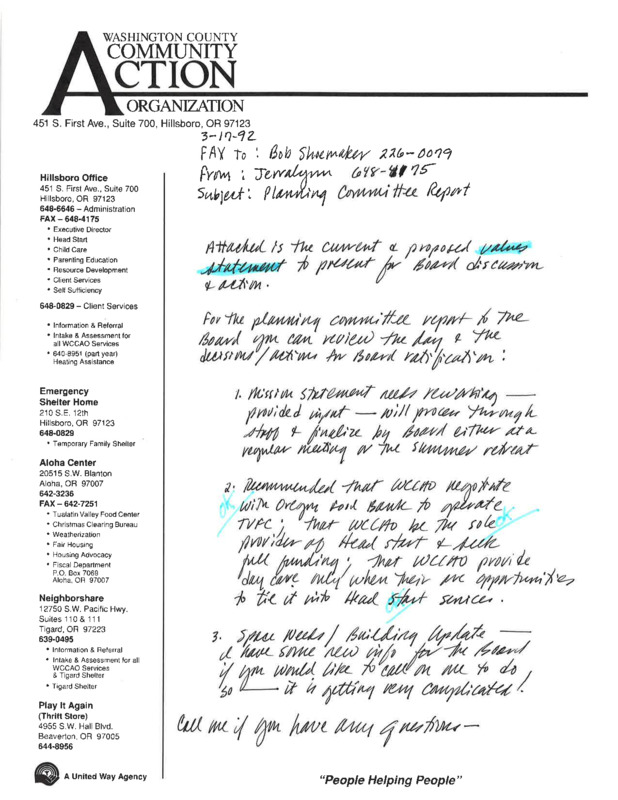 WASHINGTON COUNTY
COMMUNITY
ACTION
ORGANIZATION
451 S. First Ave., Suite 700, Hillsboro, OR 97123
3-17-92
FAX To: Bob Shoemaker 226-0079
From: Jerralynn 648-4175
Subject: Planning Committee Report
Attached is the current & proposed values
statement to present for Board discussion
& action.
For the planning committee report to the
Board you can review the day & the
decisions/actions for Board ratification:
1. Mission statement needs reworking —
provided input — will process through
staff & finalize by Board either at a
regular meeting or the summer retreat
2. Recommended that WCCAO negotiate
ok with Oregon Food Bank to operate
TVFC; that WCCAO be the sole ok
provider of Head Start & seek
full funding; that WCCAO provide
day care only when their are opportunities
to tie it into Head Start services.
3. Space Needs/Building Update —
I have some new info for the Board
if you would like to call on me to do
so — it is getting very complicated!
Call me if you have any questions —
Hillsboro Office
451 S. First Ave., Suite 700
Hillsboro, OR 97123
648-6646 – Administration
FAX – 648-4175
• Executive Director
• Head Start
• Child Care
• Parenting Education
• Resource Development
• Client Services
• Self Sufficiency
648-0829 – Client Services
• Information & Referral
• Intake & Assessment for
all WCCAO Services
• 640-8951 (part year)
Heating Assistance
Emergency
Shelter Home
210 S.E. 12th
Hillsboro, OR 97123
648-0829
• Temporary Family Shelter
Aloha Center
20515 S.W. Blanton
Aloha, OR 97007
642-3236
FAX – 642-7251
• Tualatin Valley Food Center
• Christmas Clearing Bureau
• Weatherization
• Fair Housing
• Housing Advocacy
• Fiscal Department
P.O. Box 7068
Aloha, OR 97007
Neighborshare
12750 S.W. Pacific Hwy.
Suites 110 & 111
Tigard, OR 97223
639-0495
• Information & Referral
• Intake & Assessment for all
WCCAO Services
& Tigard Shelter
• Tigard Shelter
Play It Again
(Thrift Store)
4955 S.W. Hall Blvd.
Beaverton, OR 97005
644-8956
A United Way Agency
"People Helping People"